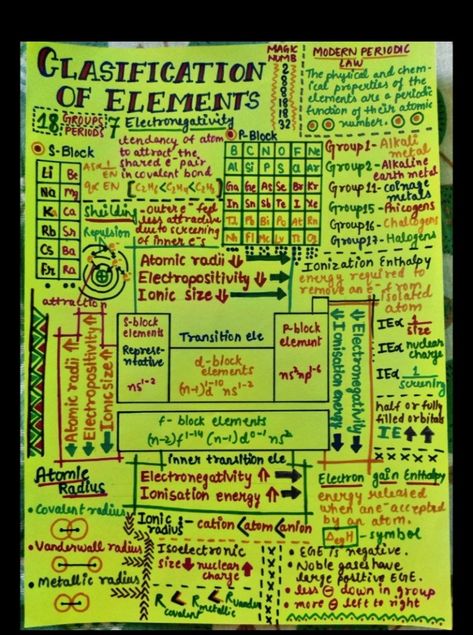 CLASIFICATION
OF ELEMENTS
MAGIC
NUMB
2
8
8
18
18
32
MODERN PERIODIC
LAW
The physical and chem-
ical properties of the
elements are a periodic
function of their atomic
number.
18 GROUPS 7
PERIODS
Electronegativity
tendancy of atom
to attract the
shared e⁻ pair
in covalent bond
EN
[C₂H₆ < C₂H₄ < C₂H₂]
S-Block
Li Be
Na Mg
K Ca
Rb Sr
Cs Ba
Fr Ra
P-Block
B C N O F Ne
Al Si P S Cl Ar
Ga Ge As Se Br Kr
In Sn Sb Te I Xe
Tl Pb Bi Po At Rn
Nh Fl Mc Lv Ts Og
Group1 - Alkali
metal
Group2 - Alkaline
earth metal
Group11 - coinage
metals
Group15 - Pnicogens
Group16 - Chalcogens
Group17 - Halogens
Sheilding - outer e⁻ feel
less attractive
due to screening
of inner e⁻s
Repulsion
attraction
Atomic radii ↓
Electropositivity ↓
Ionic size ↓
Ionization Enthalpy
energy required to
remove an e⁻ from
isolated
atom
IE∝ 1
size
IE∝ nuclear
charge
IE∝ 1
screening
half or fully
filled orbitals
IE ↑ ↑
Atomic radii ↑
Electropositivity ↑
Ionic size ↑
S-block
elements
Represe-
ntative
ns¹⁻²
Transition ele
d-block
elements
(n-1)d¹⁻¹⁰ ns¹⁻²
P-block
element
ns²np¹⁻⁶
Ionisation energy ↓
Electronegativity ↓
f-block elements
(n-2)f¹⁻¹⁴ (n-1)d⁰⁻¹ ns²
inner transition ele
Electronegativity ↑
Ionisation energy ↑
Atomic
Radius
• Covalent radius
• Vanderwall radius
• Metallic radius
Ionic
radius - cation < atom < anion
Isoelectronic
size ↓ nuclear ↑
charge
R covalent < R metallic < R vander
Electron gain Enthalpy
energy released
when an e⁻ accepted
by an atom.
ΔegH - symbol
• EGE is negative.
• Noble gases have
large positive EGE.
• less ⊖ down in group
• more ⊖ left to right